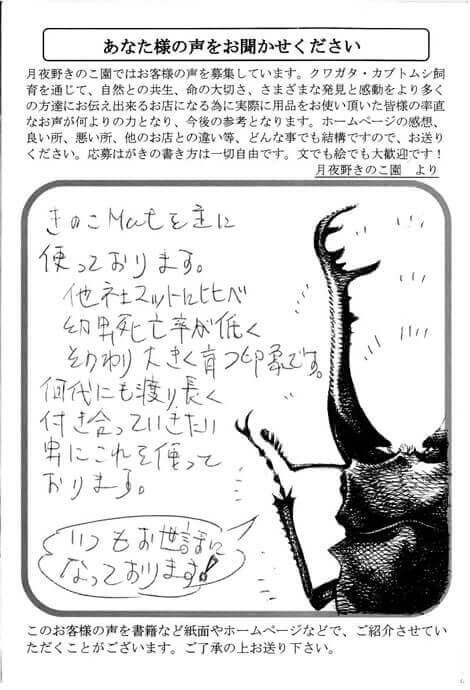 あなた様の声をお聞かせください
月夜野きのこ園ではお客様の声を募集しています。クワガタ・カブトムシ飼
育を通じて、自然との共生、命の大切さ、さまざまな発見と感動をより多く
の方達にお伝え出来るお店になる為に実際に用品をお使い頂いた皆様の率直
なお声が何よりの力となり、今後の参考となります。ホームページの感想、
良い所、悪い所、他のお店との違い等、どんな事でも結構ですので、お送り
ください。応募はがきの書き方は一切自由です。文でも絵でも大歓迎です！
月夜野きのこ園　より
きのこMatを主に
使っております。
他社マットに比べ
幼虫死亡率が低く
そのわり大きく育つ印象です。
何代にも渡り長く
付き合っていきたい
虫にこれを使って
おります。
いつもお世話に
なっております!
このお客様の声を書籍など紙面やホームページなどで、ご紹介させてい
ただくことがございます。ご了承の上お送り下さい。